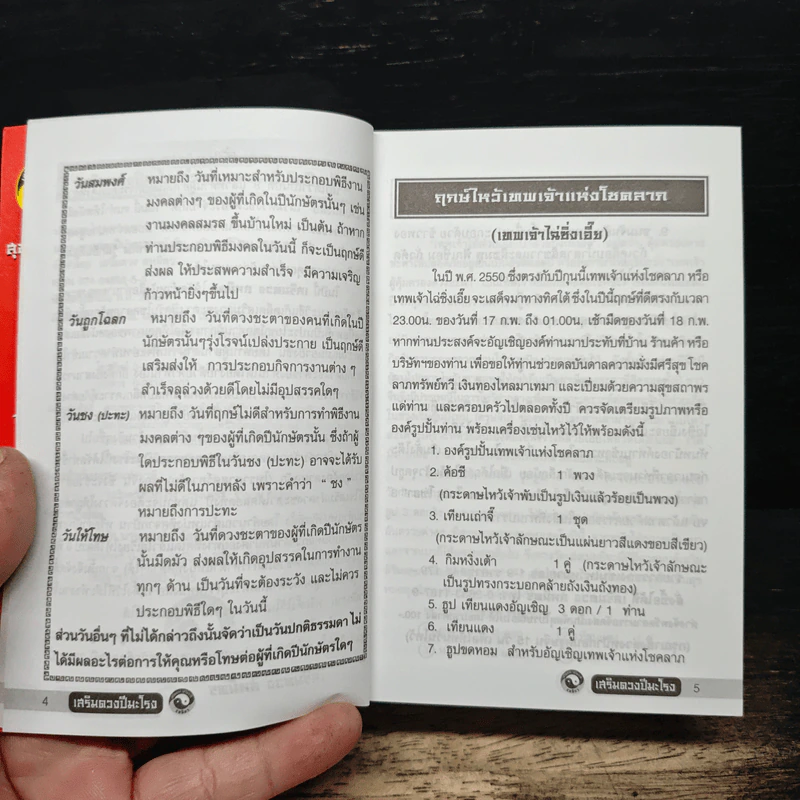 วันสมพงศ์ หมายถึง วันที่เหมาะสำหรับประกอบพิธีงาน
มงคลต่างๆ ของผู้ที่เกิดในปีนักษัตรนั้นๆ เช่น
งานมงคลสมรส ขึ้นบ้านใหม่ เป็นต้น ถ้าหาก
ท่านประกอบพิธีมงคลในวันนี้ ก็จะเป็นฤกษ์ดี
ส่งผล ให้ประสพความสำเร็จ มีความเจริญ
ก้าวหน้ายิ่งๆขึ้นไป
วันถูกโฉลก หมายถึง วันที่ดวงชะตาของคนที่เกิดในปี
นักษัตรนั้นๆรุ่งโรจน์เปล่งประกาย เป็นฤกษ์ดี
เสริมส่งให้ การประกอบกิจการงานต่าง ๆ
สำเร็จลุล่วงด้วยดีโดยไม่มีอุปสรรคใดๆ
วันชง (ปะทะ) หมายถึง วันที่ฤกษ์ไม่ดีสำหรับการทำพิธีงาน
มงคลต่าง ๆของผู้ที่เกิดปีนักษัตรนั้น ซึ่งถ้าผู้
ใดประกอบพิธีในวันชง (ปะทะ) อาจจะได้รับ
ผลที่ไม่ดีในภายหลัง เพราะคำว่า “ ชง ”
หมายถึงการปะทะ
วันให้โทษ หมายถึง วันที่ดวงชะตาของผู้ที่เกิดปีนักษัตร
นั้นมืดมัว ส่งผลให้เกิดอุปสรรคในการทำงาน
ทุกๆ ด้าน เป็นวันที่จะต้องระวัง และไม่ควร
ประกอบพิธีใดๆ ในวันนี้
ส่วนวันอื่นๆ ที่ไม่ได้กล่าวถึงนั้นจัดว่าเป็นวันปกติธรรมดา ไม่
ได้มีผลอะไรต่อการให้คุณหรือโทษต่อผู้ที่เกิดปีนักษัตรใดๆ
4 เสริมดวงปีมะโรง
ฤกษ์ไหว้เทพเจ้าแห่งโชคลาภ
(เทพเจ้าไฉ่ซิ่งเอี๊ย)
ในปี พ.ศ. 2550 ซึ่งตรงกับปีกุนนี้เทพเจ้าแห่งโชคลาภ หรือ
เทพเจ้าไฉ่ซิ่งเอี๊ย จะเสด็จมาทางทิศใต้ ซึ่งในปีนี้ฤกษ์ที่ดีตรงกับเวลา
23.00น. ของวันที่ 17 ก.พ. ถึง 01.00น. เช้ามืดของวันที่ 18 ก.พ.
หากท่านประสงค์จะอัญเชิญองค์ท่านมาประทับที่บ้าน ร้านค้า หรือ
บริษัทฯของท่าน เพื่อขอให้ท่านช่วยดลบันดาลความมั่งมีศรีสุข โชค
ลาภทรัพย์ทวี เงินทองไหลมาเทมา และเปี่ยมด้วยความสุขสถาพร
แด่ท่าน และครอบครัวไปตลอดทั้งปี ควรจัดเตรียมรูปภาพหรือ
องค์รูปปั้นท่าน พร้อมเครื่องเซ่นไหว้ไว้ให้พร้อมดังนี้
1. องค์รูปปั้นเทพเจ้าแห่งโชคลาภ
2. ค้อซี 1 พวง
(กระดาษไหว้เจ้าพับเป็นรูปเงินแล้วร้อยเป็นพวง)
3. เทียนเถ่าจี๊ 1 ชุด
(กระดาษไหว้เจ้าลักษณะเป็นแผ่นยาวสีแดงขอบสีเขียว)
4. กิมหงิ่งเต้า 1 คู่ (กระดาษไหว้เจ้าลักษณะ
เป็นรูปทรงกระบอกคล้ายถังเงินถังทอง)
5. ธูป เทียนแดงอัญเชิญ 3 ดอก / 1 ท่าน
6. เทียนแดง 1 คู่
7. ธูปขดหอม สำหรับอัญเชิญเทพเจ้าแห่งโชคลาภ
เสริมดวงปีมะโรง 5